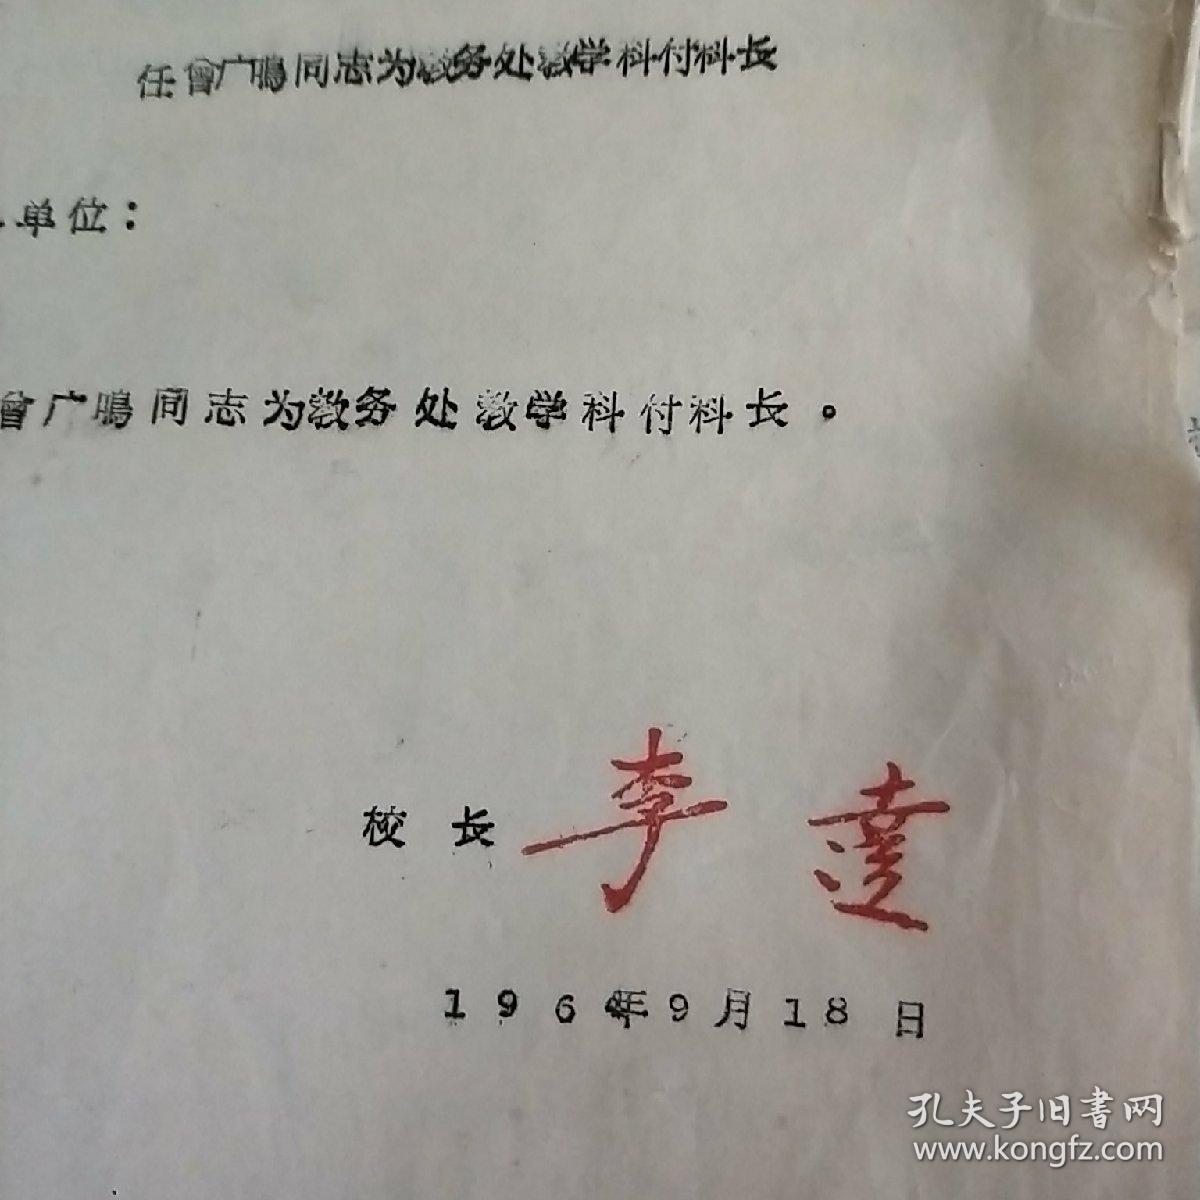 任曾广鸣同志为教务处教学科付科长
单位：
曾广鸣同志为教务处教学科付科长。
校 长 李 達
196年9月18日
孔夫子旧書网
www.kongfz.com